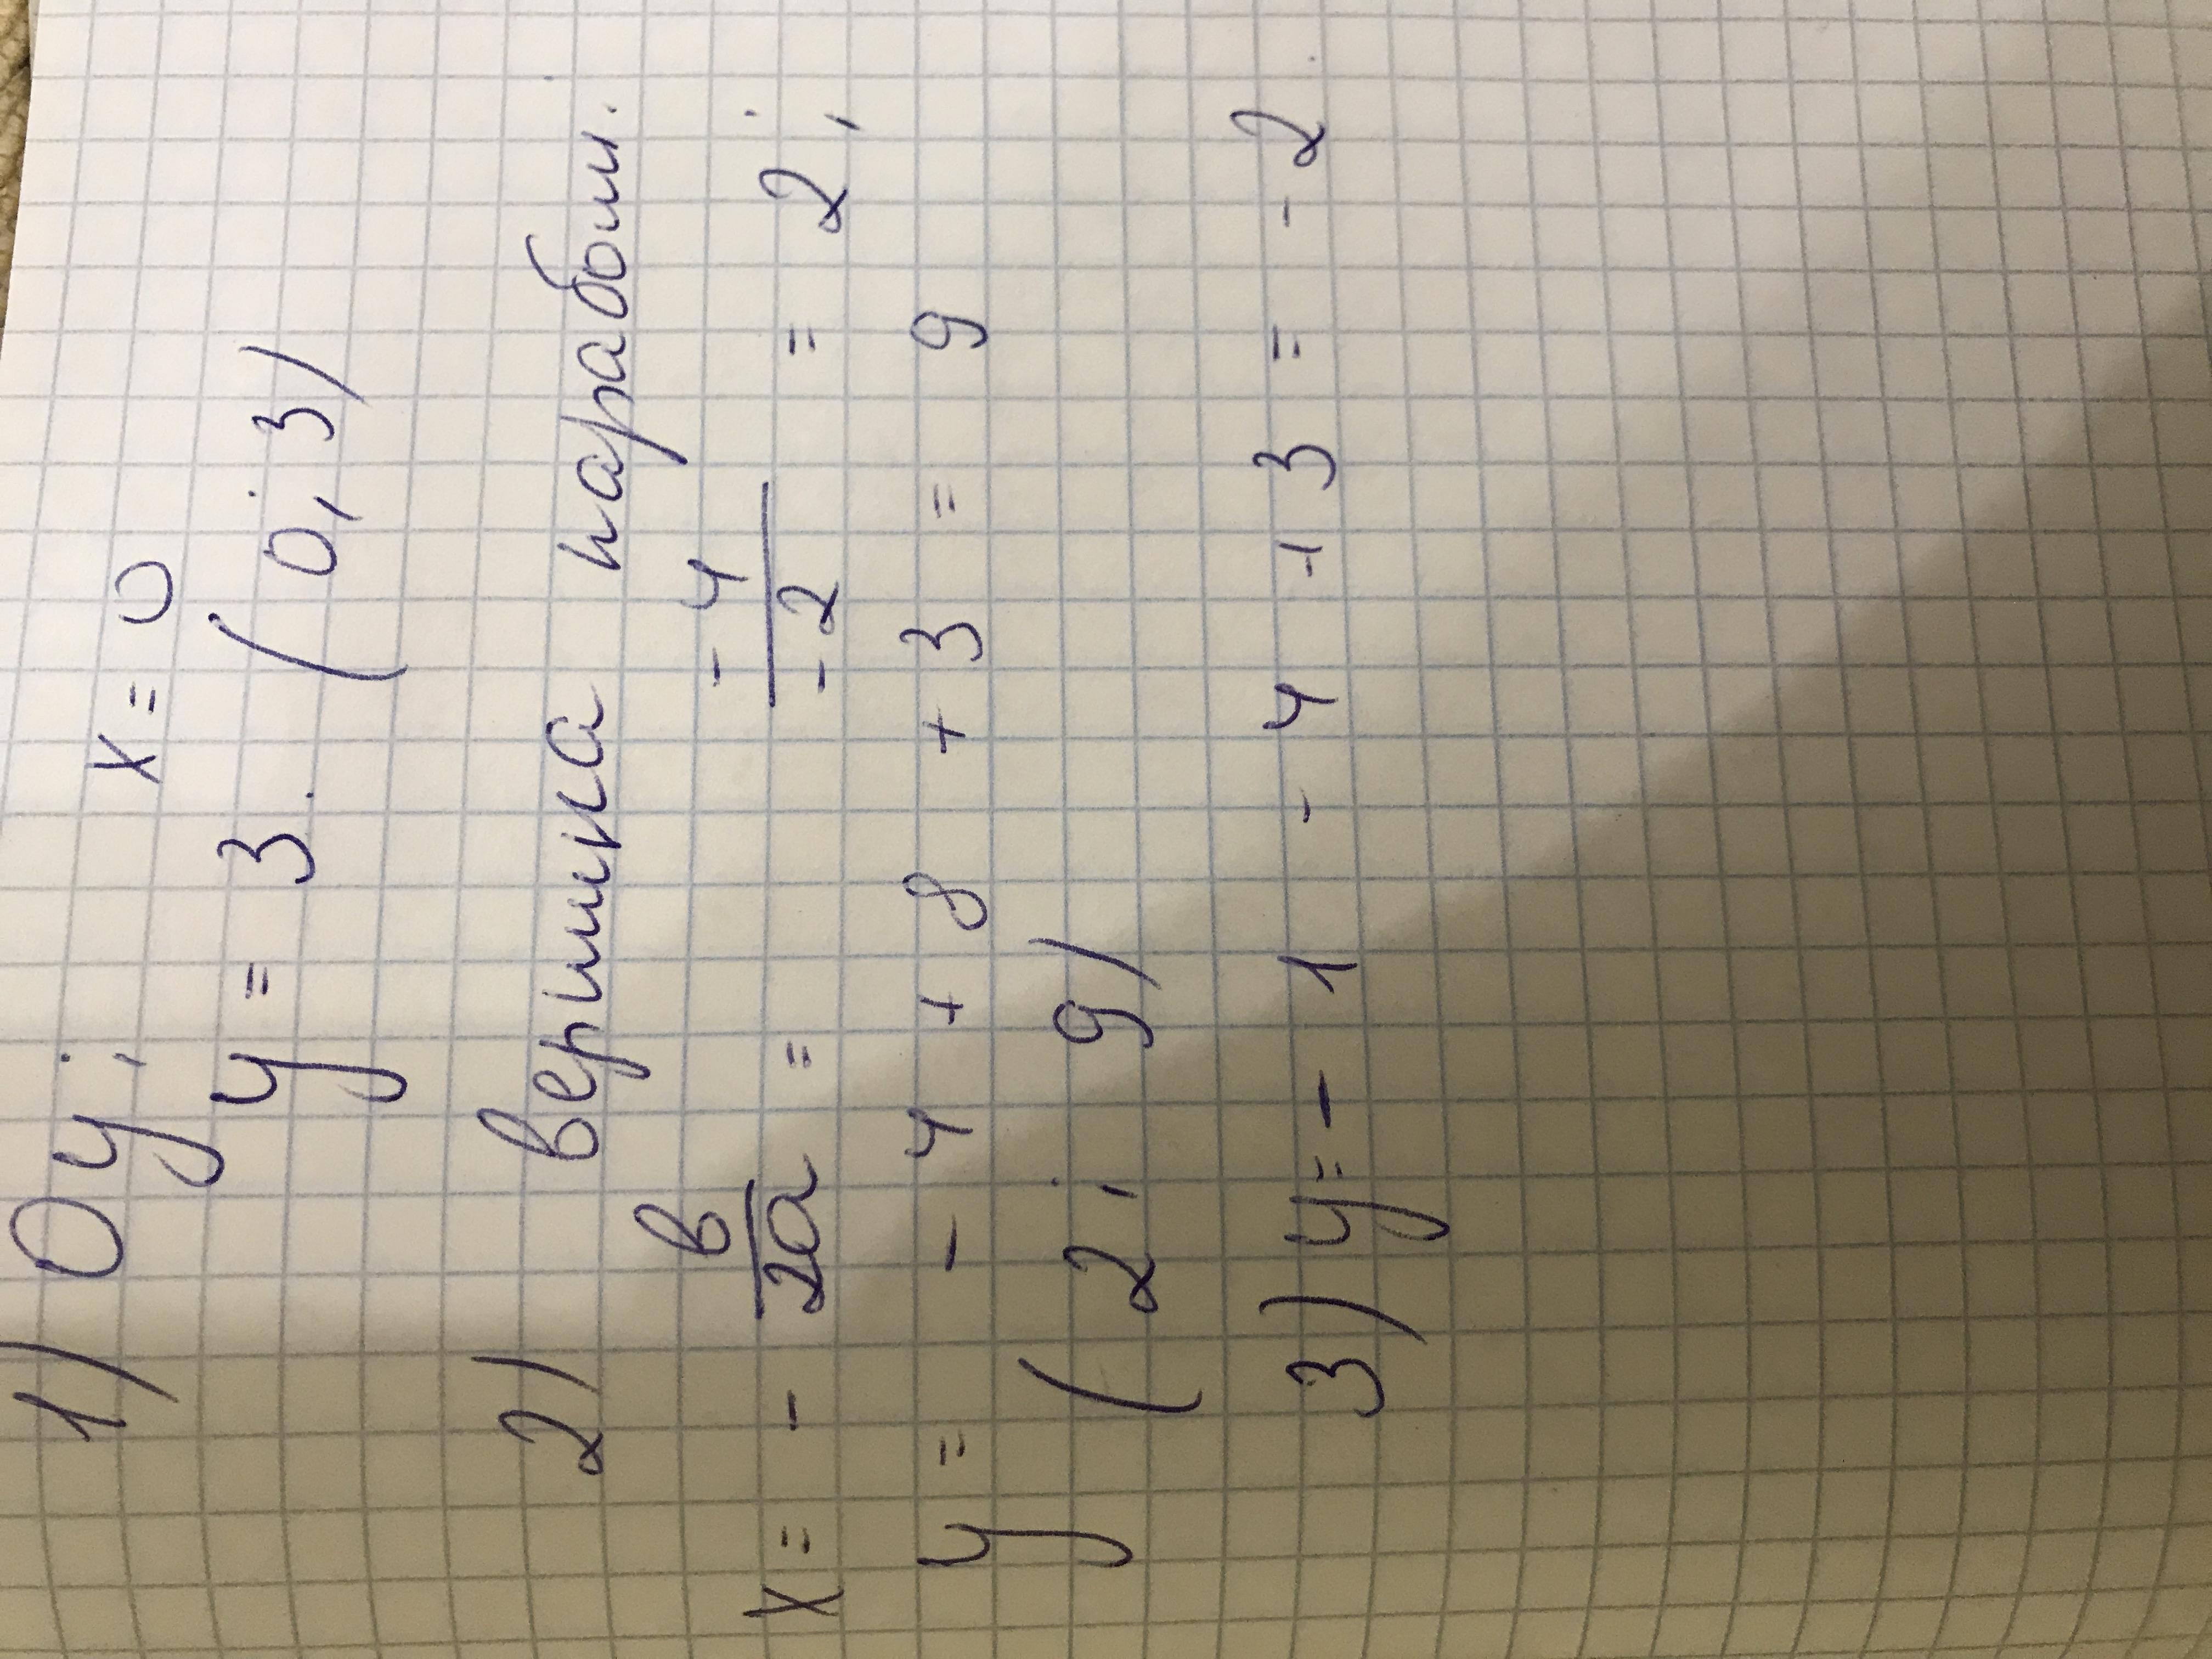 1) Oy; x = 0
y = 3. (0; 3)
2) вершина параболи.
x = - в/2a = -4/-2 = 2;
y = -4 + 8 + 3 = 9
(2; 9)
3) y = -1 - 4 + 3 = -2